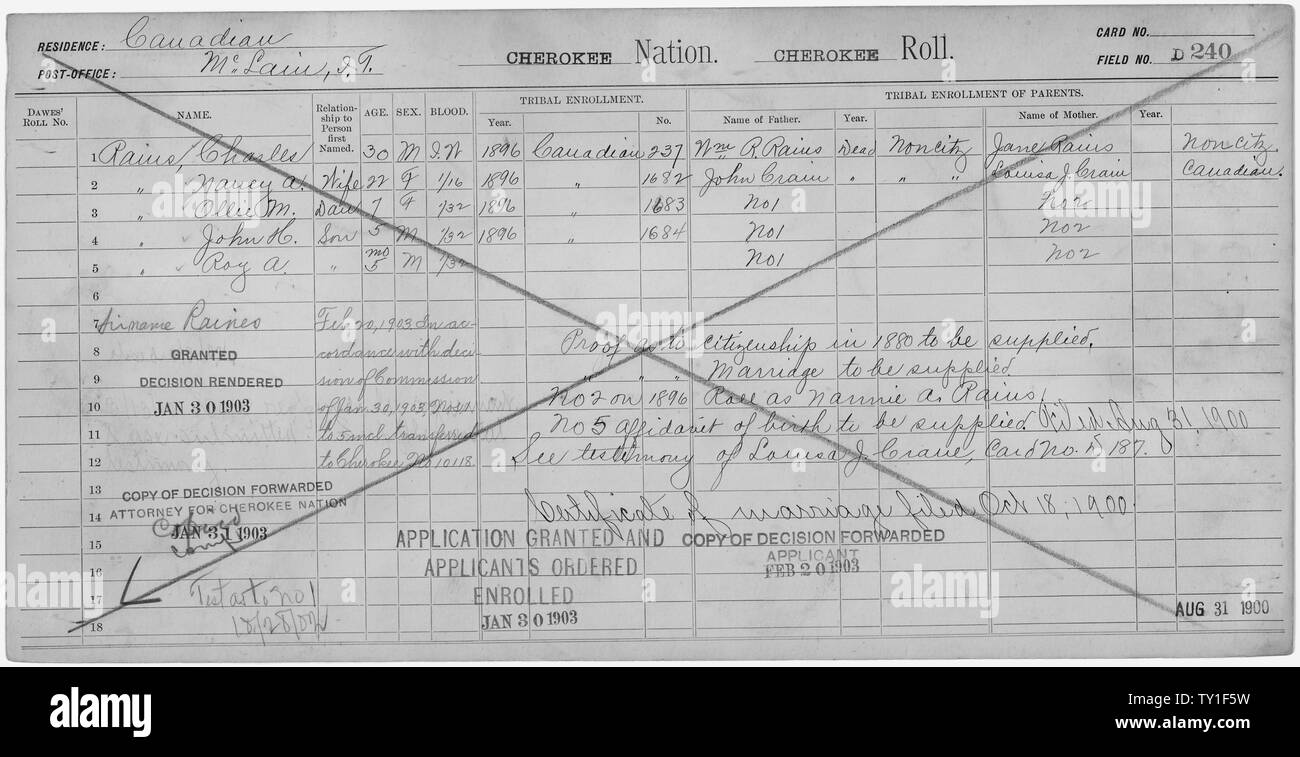 RESIDENCE: Canadian
POST-OFFICE: McLain, I.T.
CHEROKEE Nation. CHEROKEE Roll.
CARD NO.
FIELD NO. D 240
DAWES' ROLL NO. NAME. Relationship to Person first Named. AGE. SEX. BLOOD. TRIBAL ENROLLMENT. Year. No. TRIBAL ENROLLMENT OF PARENTS. Name of Father. Year. Name of Mother. Year.
1 Rains, Charles 30 M I.W 1896 Canadian 237 Wm R. Rains Dead Noncitz Jane Rains Noncitz.
2 " Nancy A. Wife 22 F 1/16 1896 " 1682 John Crain " " " Louisa J. Crain Canadian.
3 " Ollie M. Dau 7 F 1/32 1896 " 1683 No1 No2
4 " John H. Son 5 M 1/32 1896 " 1684 No1 No2
5 " Roy A. " 5 mo M 1/32 No1 No2
6
7 Sirname Raines Feb 20, 1903 In ac-
8 GRANTED cordance with deci- Proof as to citizenship in 1880 to be supplied.
9 DECISION RENDERED sion of Commission " " " Marriage to be supplied.
10 JAN 30 1903 of Jan 30, 1903 Nos 1. No 2 on 1896 Roll as Nannie A. Rains.
11 to 5 incl. transferred No 5 Affidavit of birth to be supplied. Filed Aug 31, 1900
12 to Cherokee No 10118. See testimony of Louisa J. Crane, Card No. D 187.
13 COPY OF DECISION FORWARDED
ATTORNEY FOR CHEROKEE NATION
14 Certificate of marriage filed Oct 18, 1900.
JAN 31 1903
15 APPLICATION GRANTED AND COPY OF DECISION FORWARDED
APPLICANT
16 APPLICANTS ORDERED FEB 20 1903
17 Test as to No 1 ENROLLED
18 10/28/02 JAN 30 1903 AUG 31 1900
alamy
a
alamy
Image ID: TY1F5W
www.alamy.com